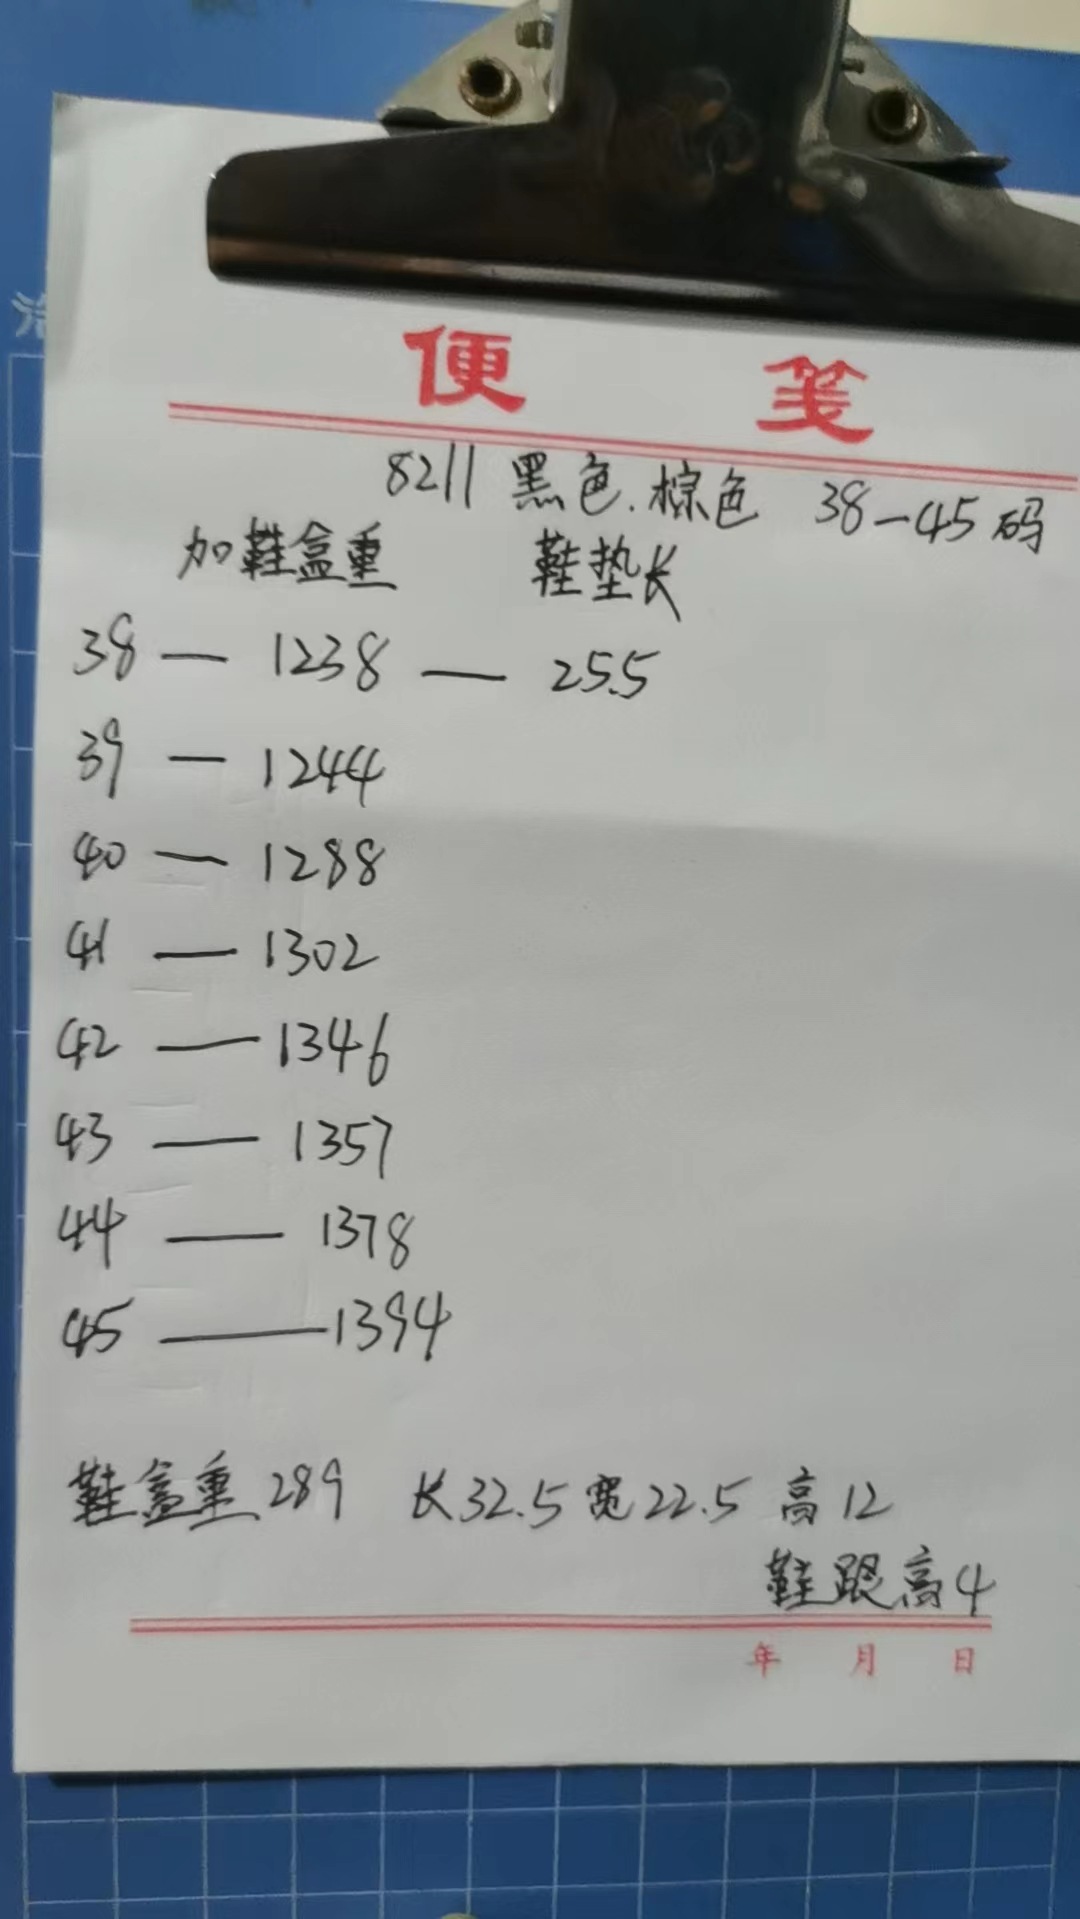 便 笺
8211 黑色.棕色 38—45码
加鞋盒重 鞋垫长
38 — 1238 — 25.5
39 — 1244
40 — 1288
41 — 1302
42 — 1346
43 — 1357
44 — 1378
45 — 1394
鞋盒重289 长32.5 宽22.5 高12
鞋跟高4
年 月 日